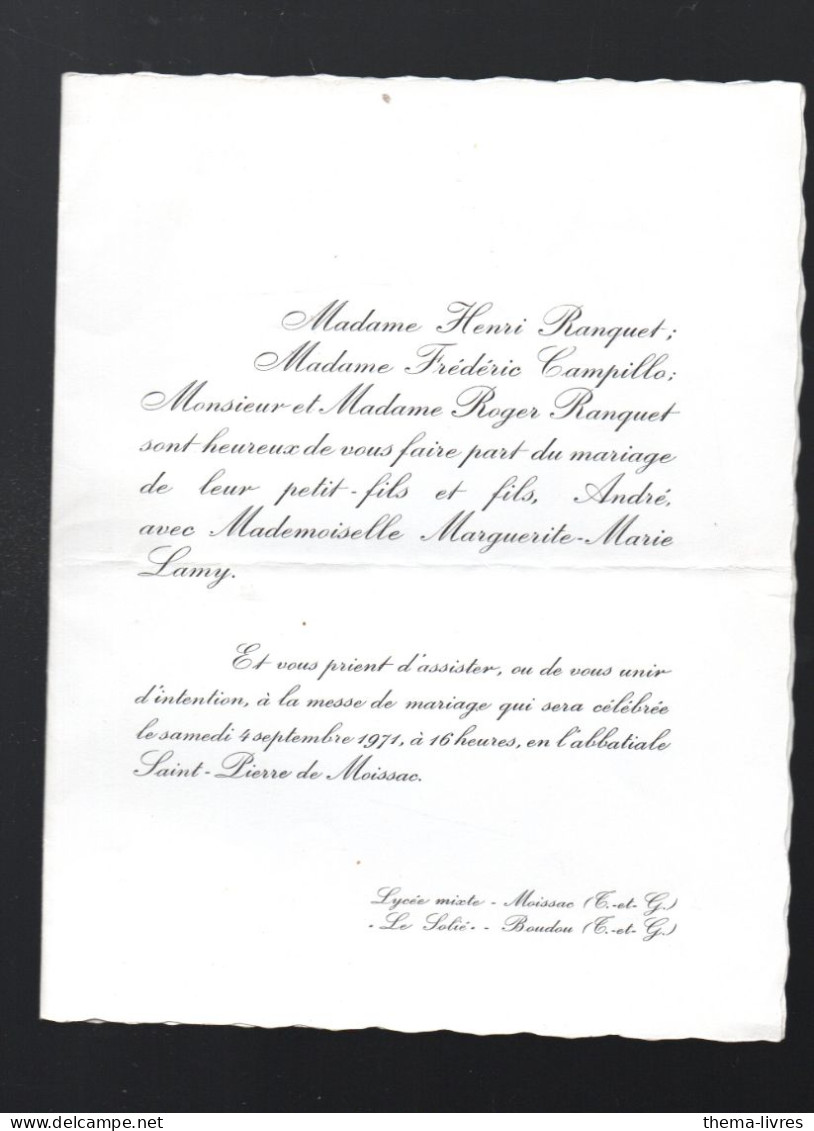 Madame Henri Ranquet ;
Madame Frédéric Campillo ;
Monsieur et Madame Roger Ranquet
sont heureux de vous faire part du mariage
de leur petit-fils et fils, André,
avec Mademoiselle Marguerite-Marie
Lamy.
Et vous prient d'assister, ou de vous unir
d'intention, à la messe de mariage qui sera célébrée
le samedi 4 septembre 1971, à 16 heures, en l'abbatiale
Saint-Pierre de Moissac.
Lycée mixte - Moissac (T.-et-G.)
"Le Solié" - Boudou (T.-et-G.)
thema-livres